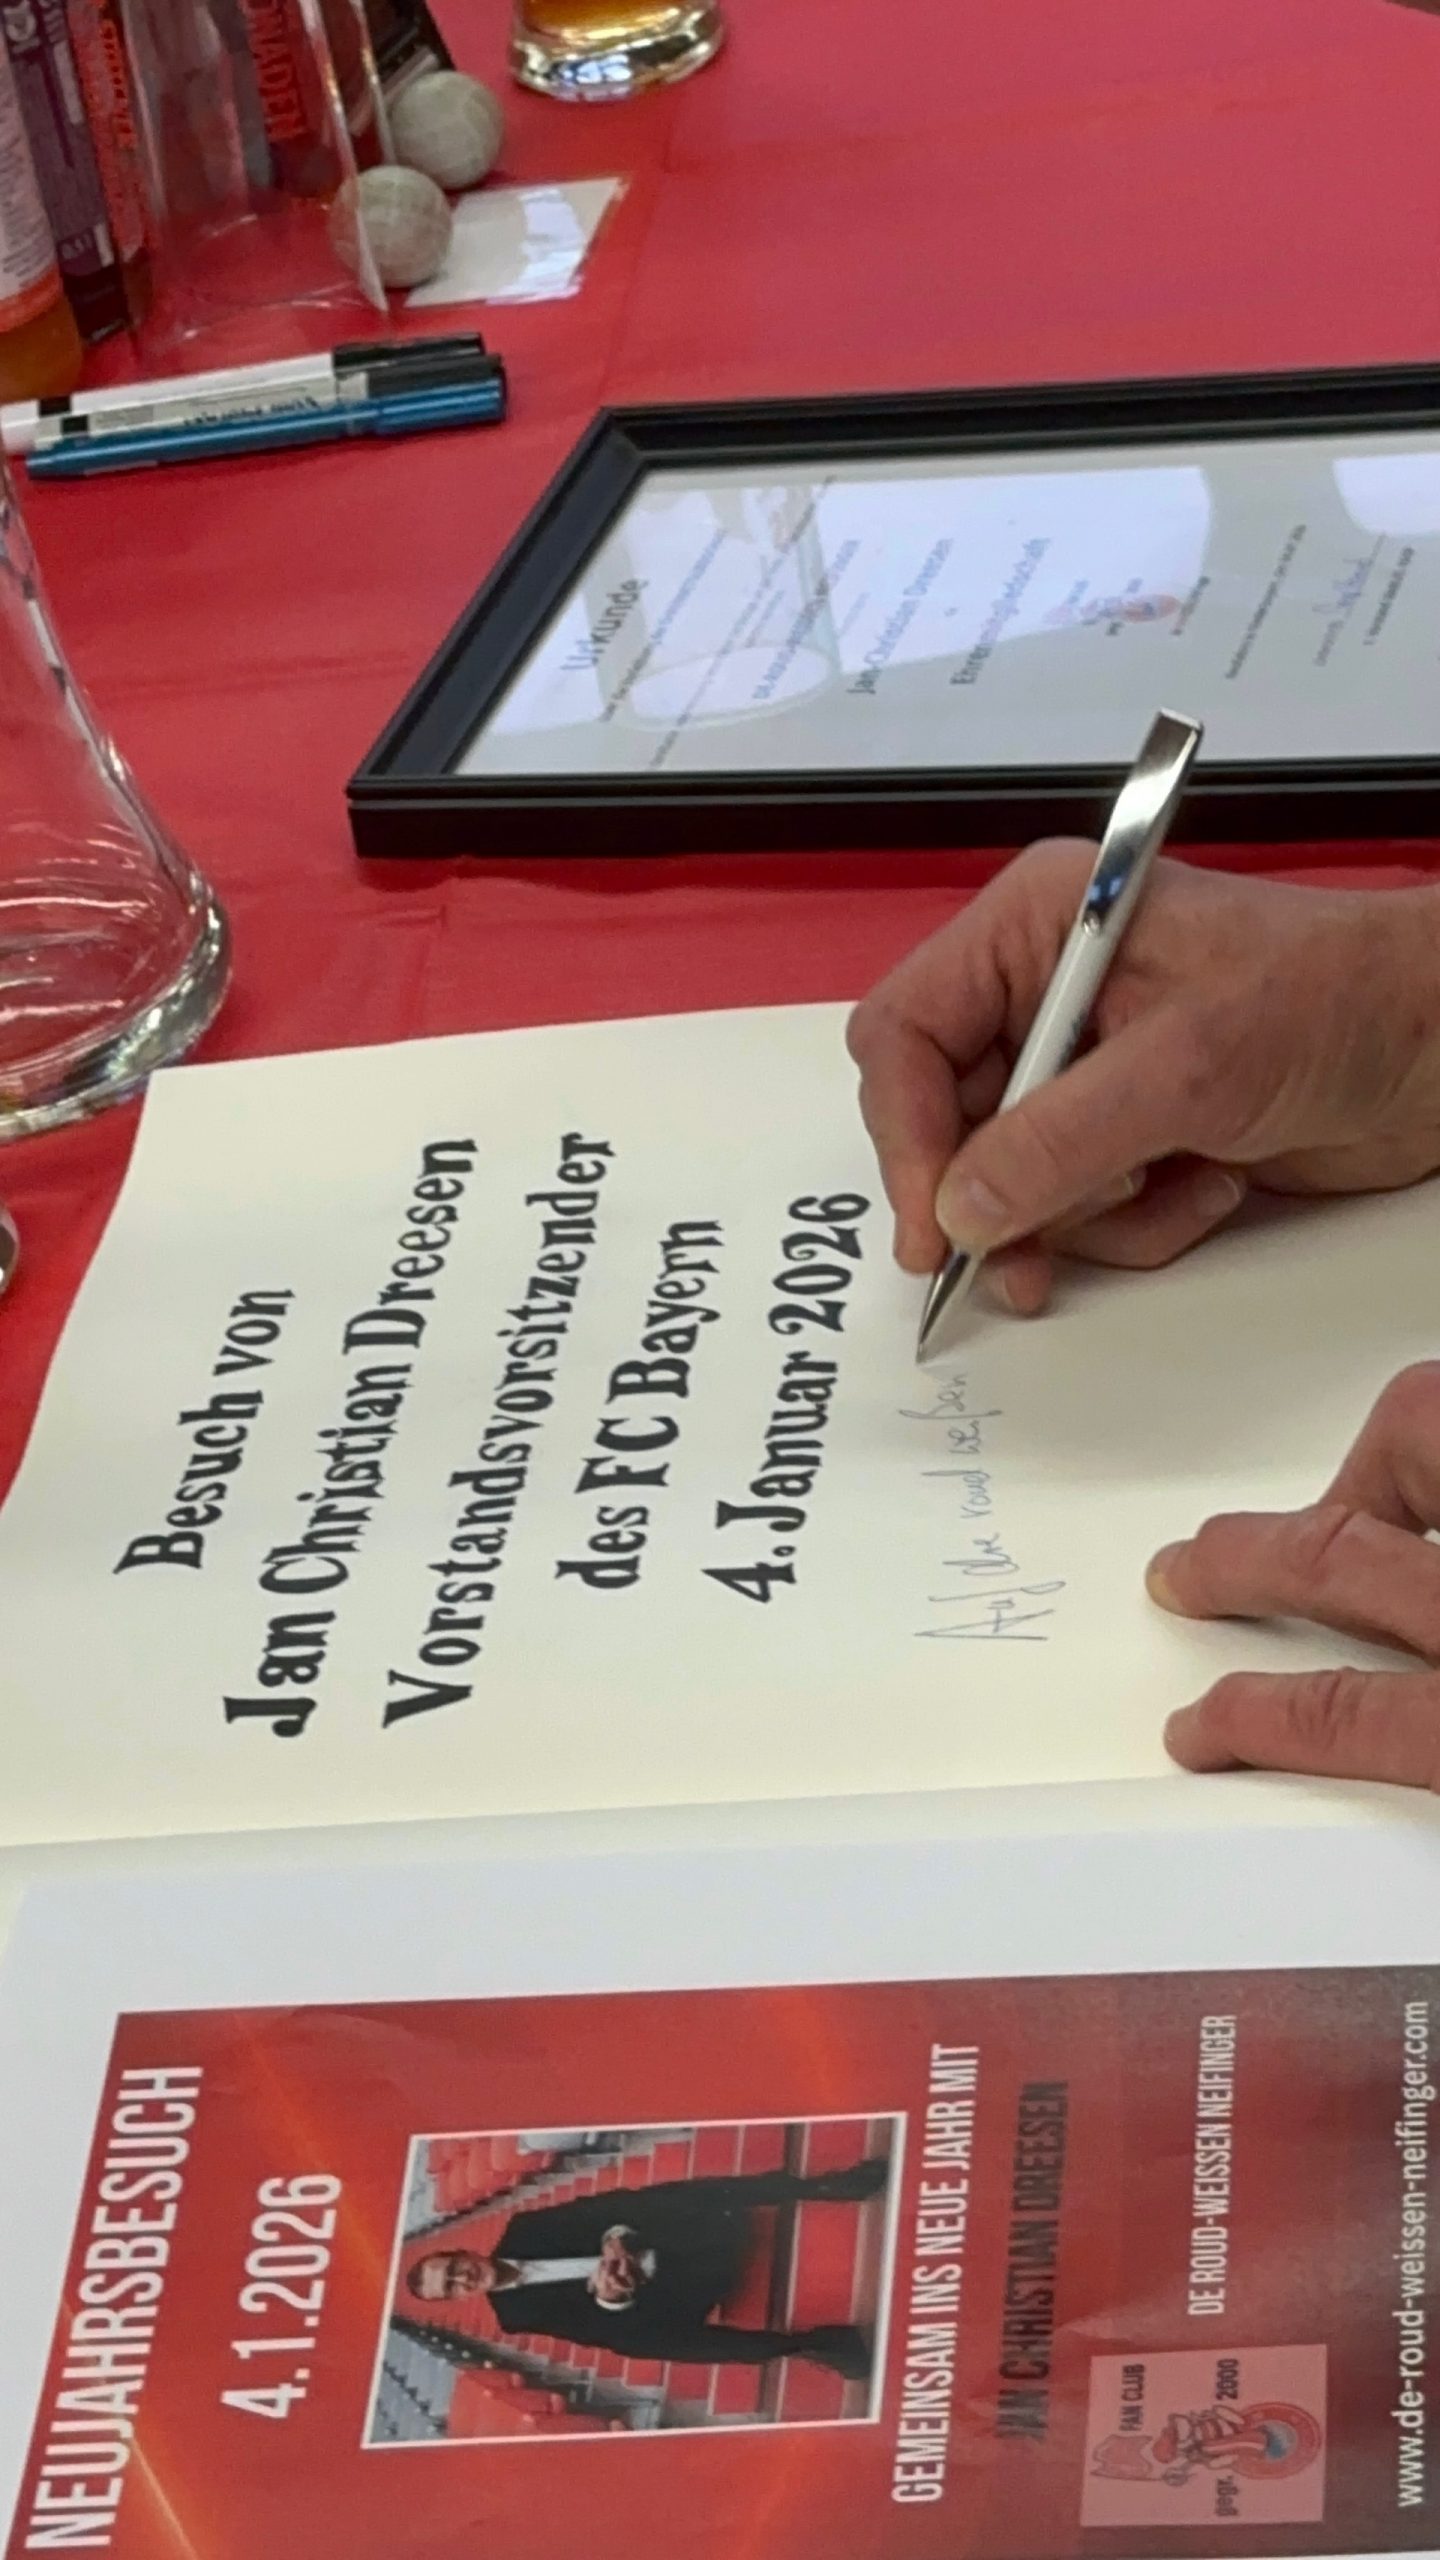 Besuch von
Jan Christian Dreesen
Vorstandsvorsitzender
des FC Bayern
4. Januar 2026
Auf die roud weißen
NEUJAHRSBESUCH
4.1.2026
GEMEINSAM INS NEUE JAHR MIT
JAN CHRISTIAN DREESEN
DE ROUD-WEISSEN NEIFINGER
FAN CLUB
gegr. 2000
www.de-roud-weissen-neifinger.com
Urkunde
Jan-Christian Dreesen
Ehrenmitgliedschaft